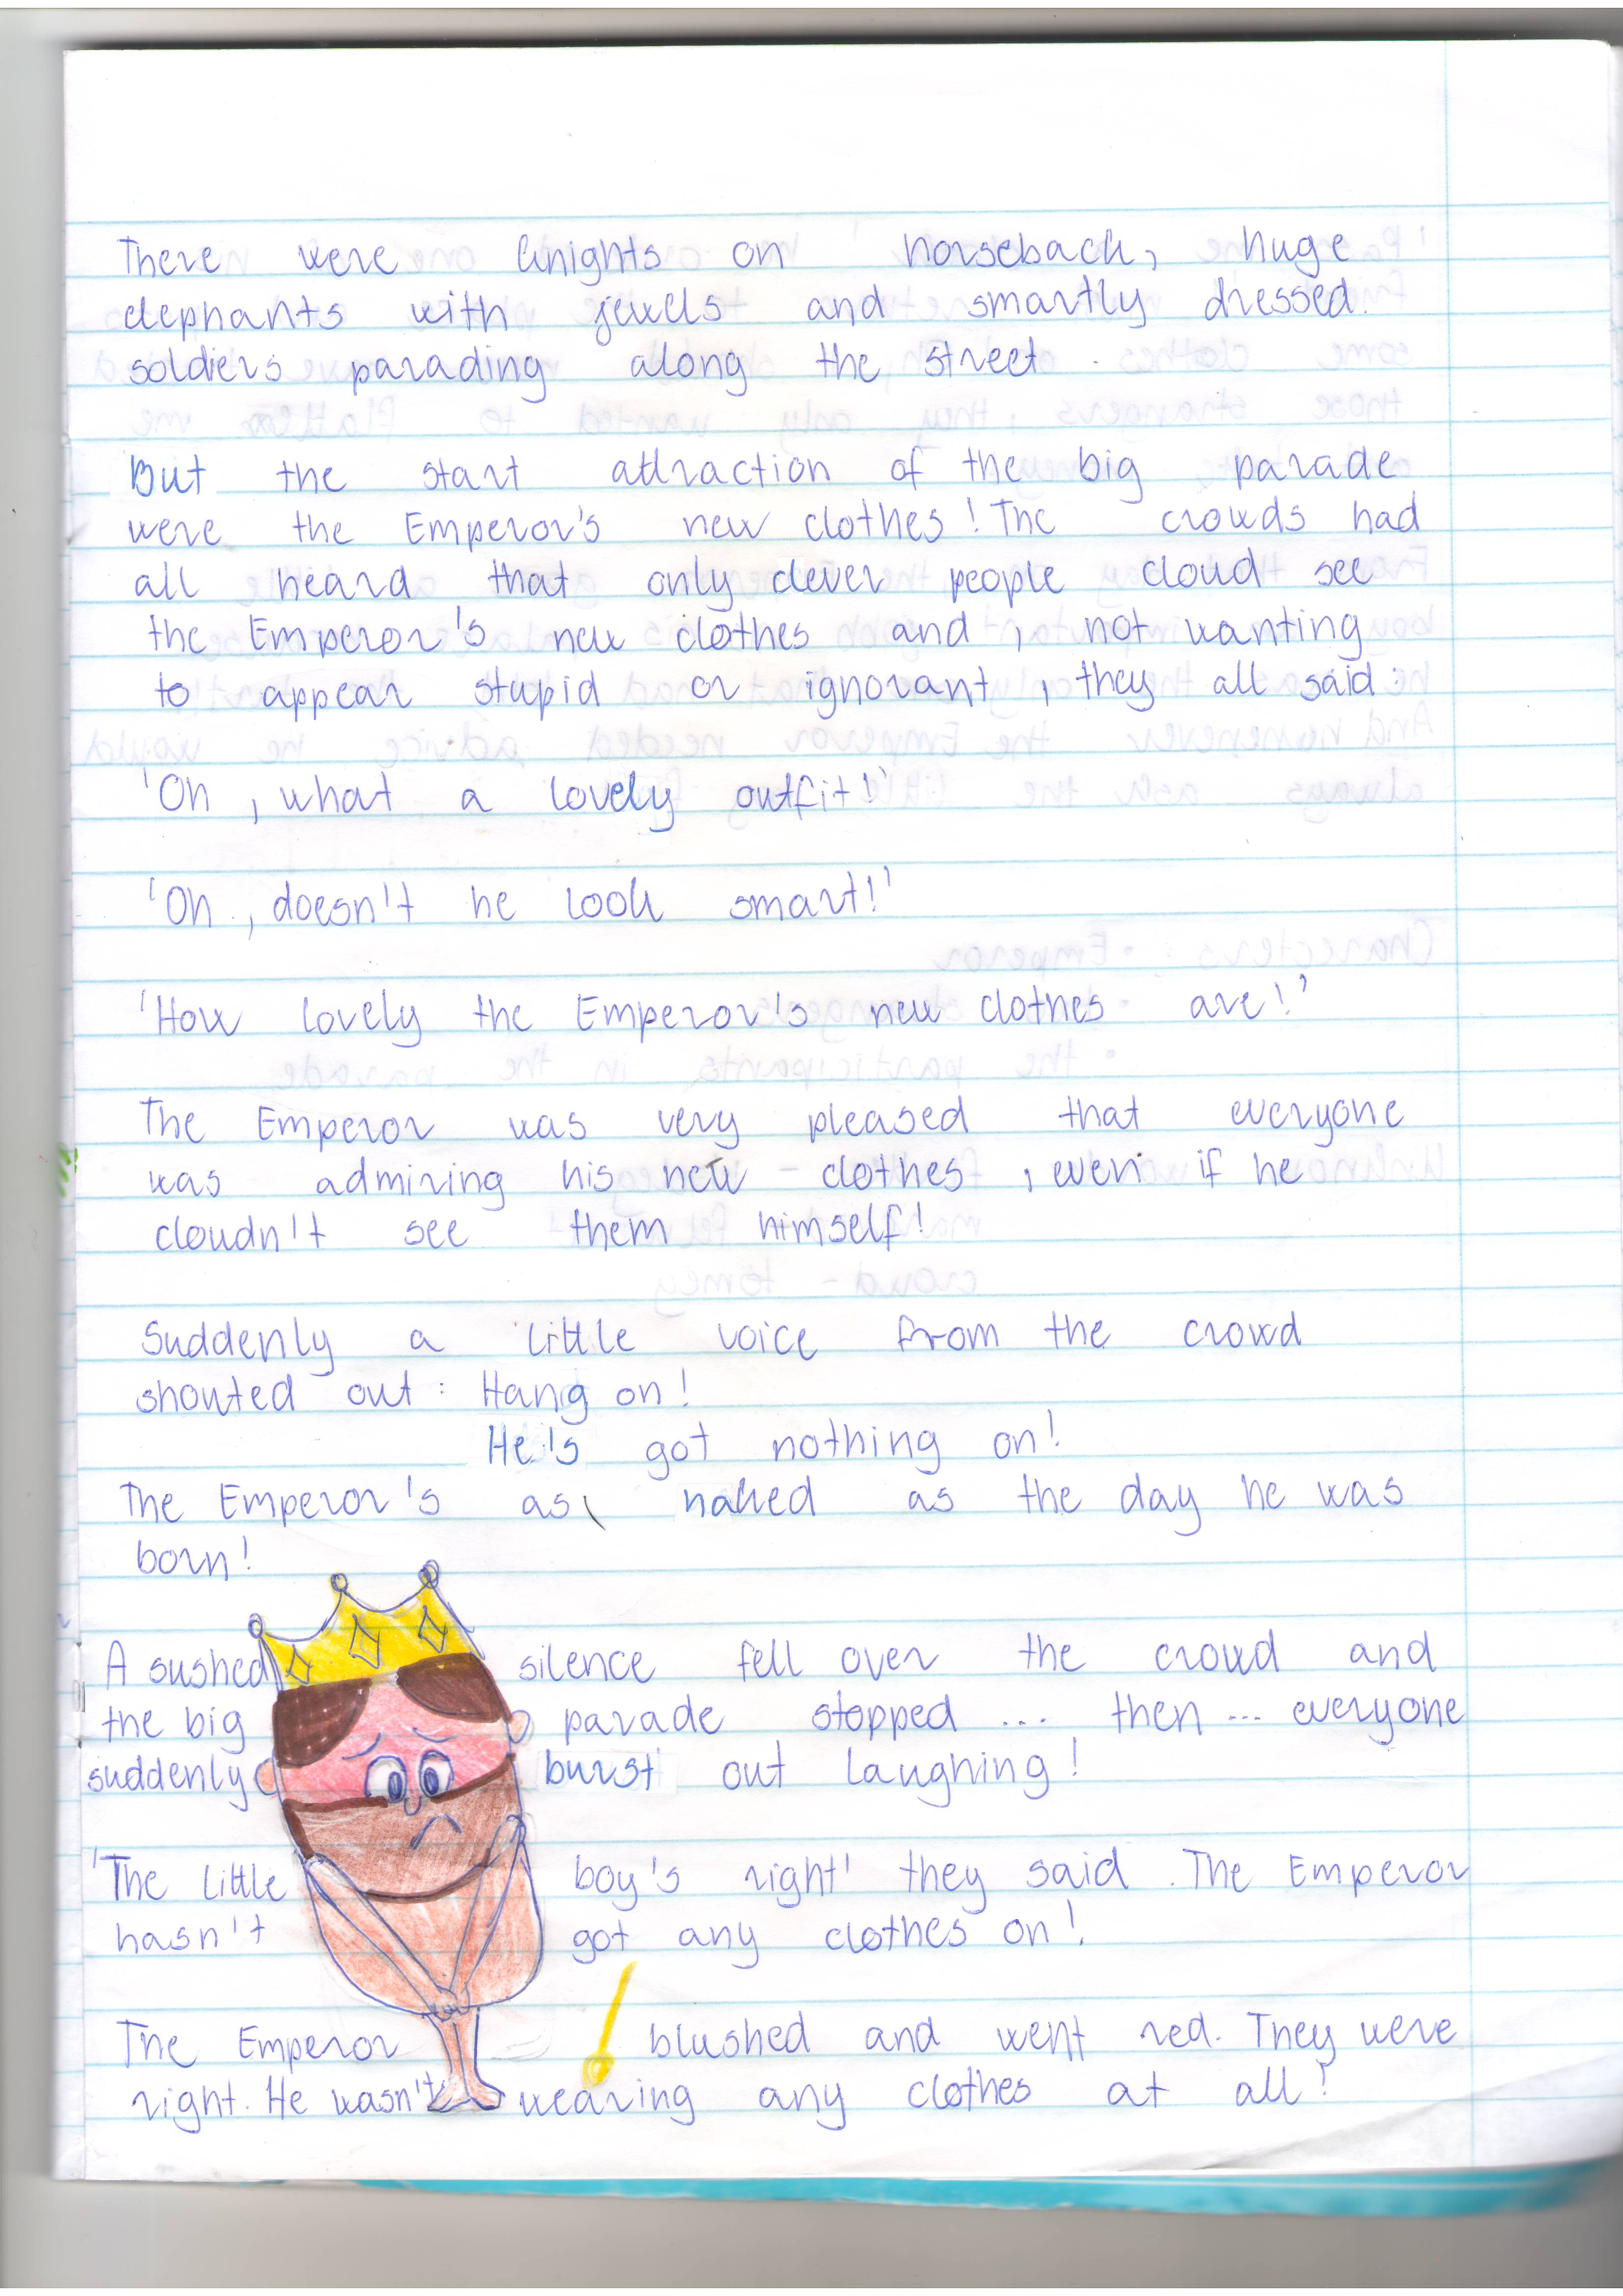 There were knights on horseback, huge
elephants with jewels and smartly dressed.
soldiers parading along the street.
But the start attraction of the big parade
were the Emperor's new clothes! The crowds had
all heard that only clever people cloud see
the Emperor's new clothes and, not wanting
to appear stupid or ignorant, they all said:
'Oh, what a lovely outfit!'
'Oh, doesn't he look smart!'
'How lovely the Emperor's new clothes are!'
The Emperor was very pleased that everyone
was admiring his new clothes, even if he
cloudn't see them himself!
Suddenly a little voice from the crowd
shouted out: Hang on!
He's got nothing on!
The Emperor's as naked as the day he was
born!
A sushed silence fell over the crowd and
the big parade stopped ... then ... everyone
suddenly burst out laughing!
'The little boy's right' they said. The Emperor
hasn't got any clothes on!
The Emperor blushed and went red. They were
right. He wasn't wearing any clothes at all!